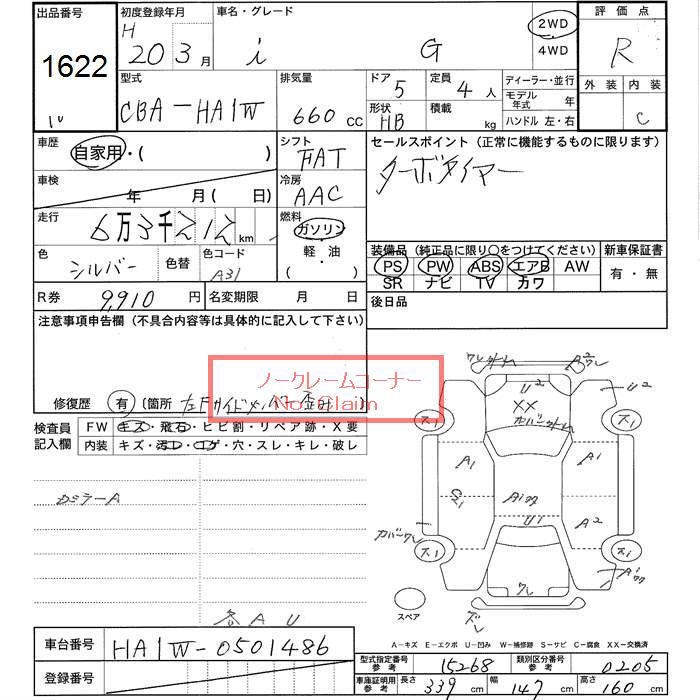 出品番号 初度登録年月 車名・グレード 評価点
1622 H 20 3月 i G 2WD 4WD R
型式 排気量 ドア 5 定員 4 人 ディーラー・並行 外装 内装
CBA-HA1W 660 CC 形状 HB 積載 kg モデル年式 年 C
ハンドル 左・右
車歴 自家用・( ) シフト FAT セールスポイント (正常に機能するものに限ります)
車検 年 月( 日) 冷房 AAC ターボタイマー
走行 6万3千212 km 燃料 ガソリン 軽・油 ( )
装備品 (純正品に限り○をつけてください) 新車保証書
色 シルバー 色替 色コード A31
PS PW ABS エアB AW 有・無
SR ナビ TV カワ
R券 9,910 円 名変期限 月 日 後日品
注意事項申告欄 (不具合内容等は具体的に記入して下さい)
ノークレームコーナー
No Claim
修復歴 有 〔箇所
検査員記入欄 FW キズ・飛石・ヒビ割・リペア跡・X要
内装 キズ・汚レ・コゲ・穴・スレ・キレ・破レ
カミラーA
各AU
ワレ U2 U2
XX カバー外レ
ス1 ス1
A1 A1
S21 A1 A2
カバーワレ U1
ス1 ス1
ワレ A1
スペア ズレ
A-キズ E-エクボ U-凹み W-補修跡 S-サビ C-腐食 XX-交換済
車台番号 HA1W-0501486
型式指定番号参考 15268 類別区分番号参考 0205
登録番号 車庫証明用参考 長さ 339 cm 幅 147 cm 高さ 160 cm